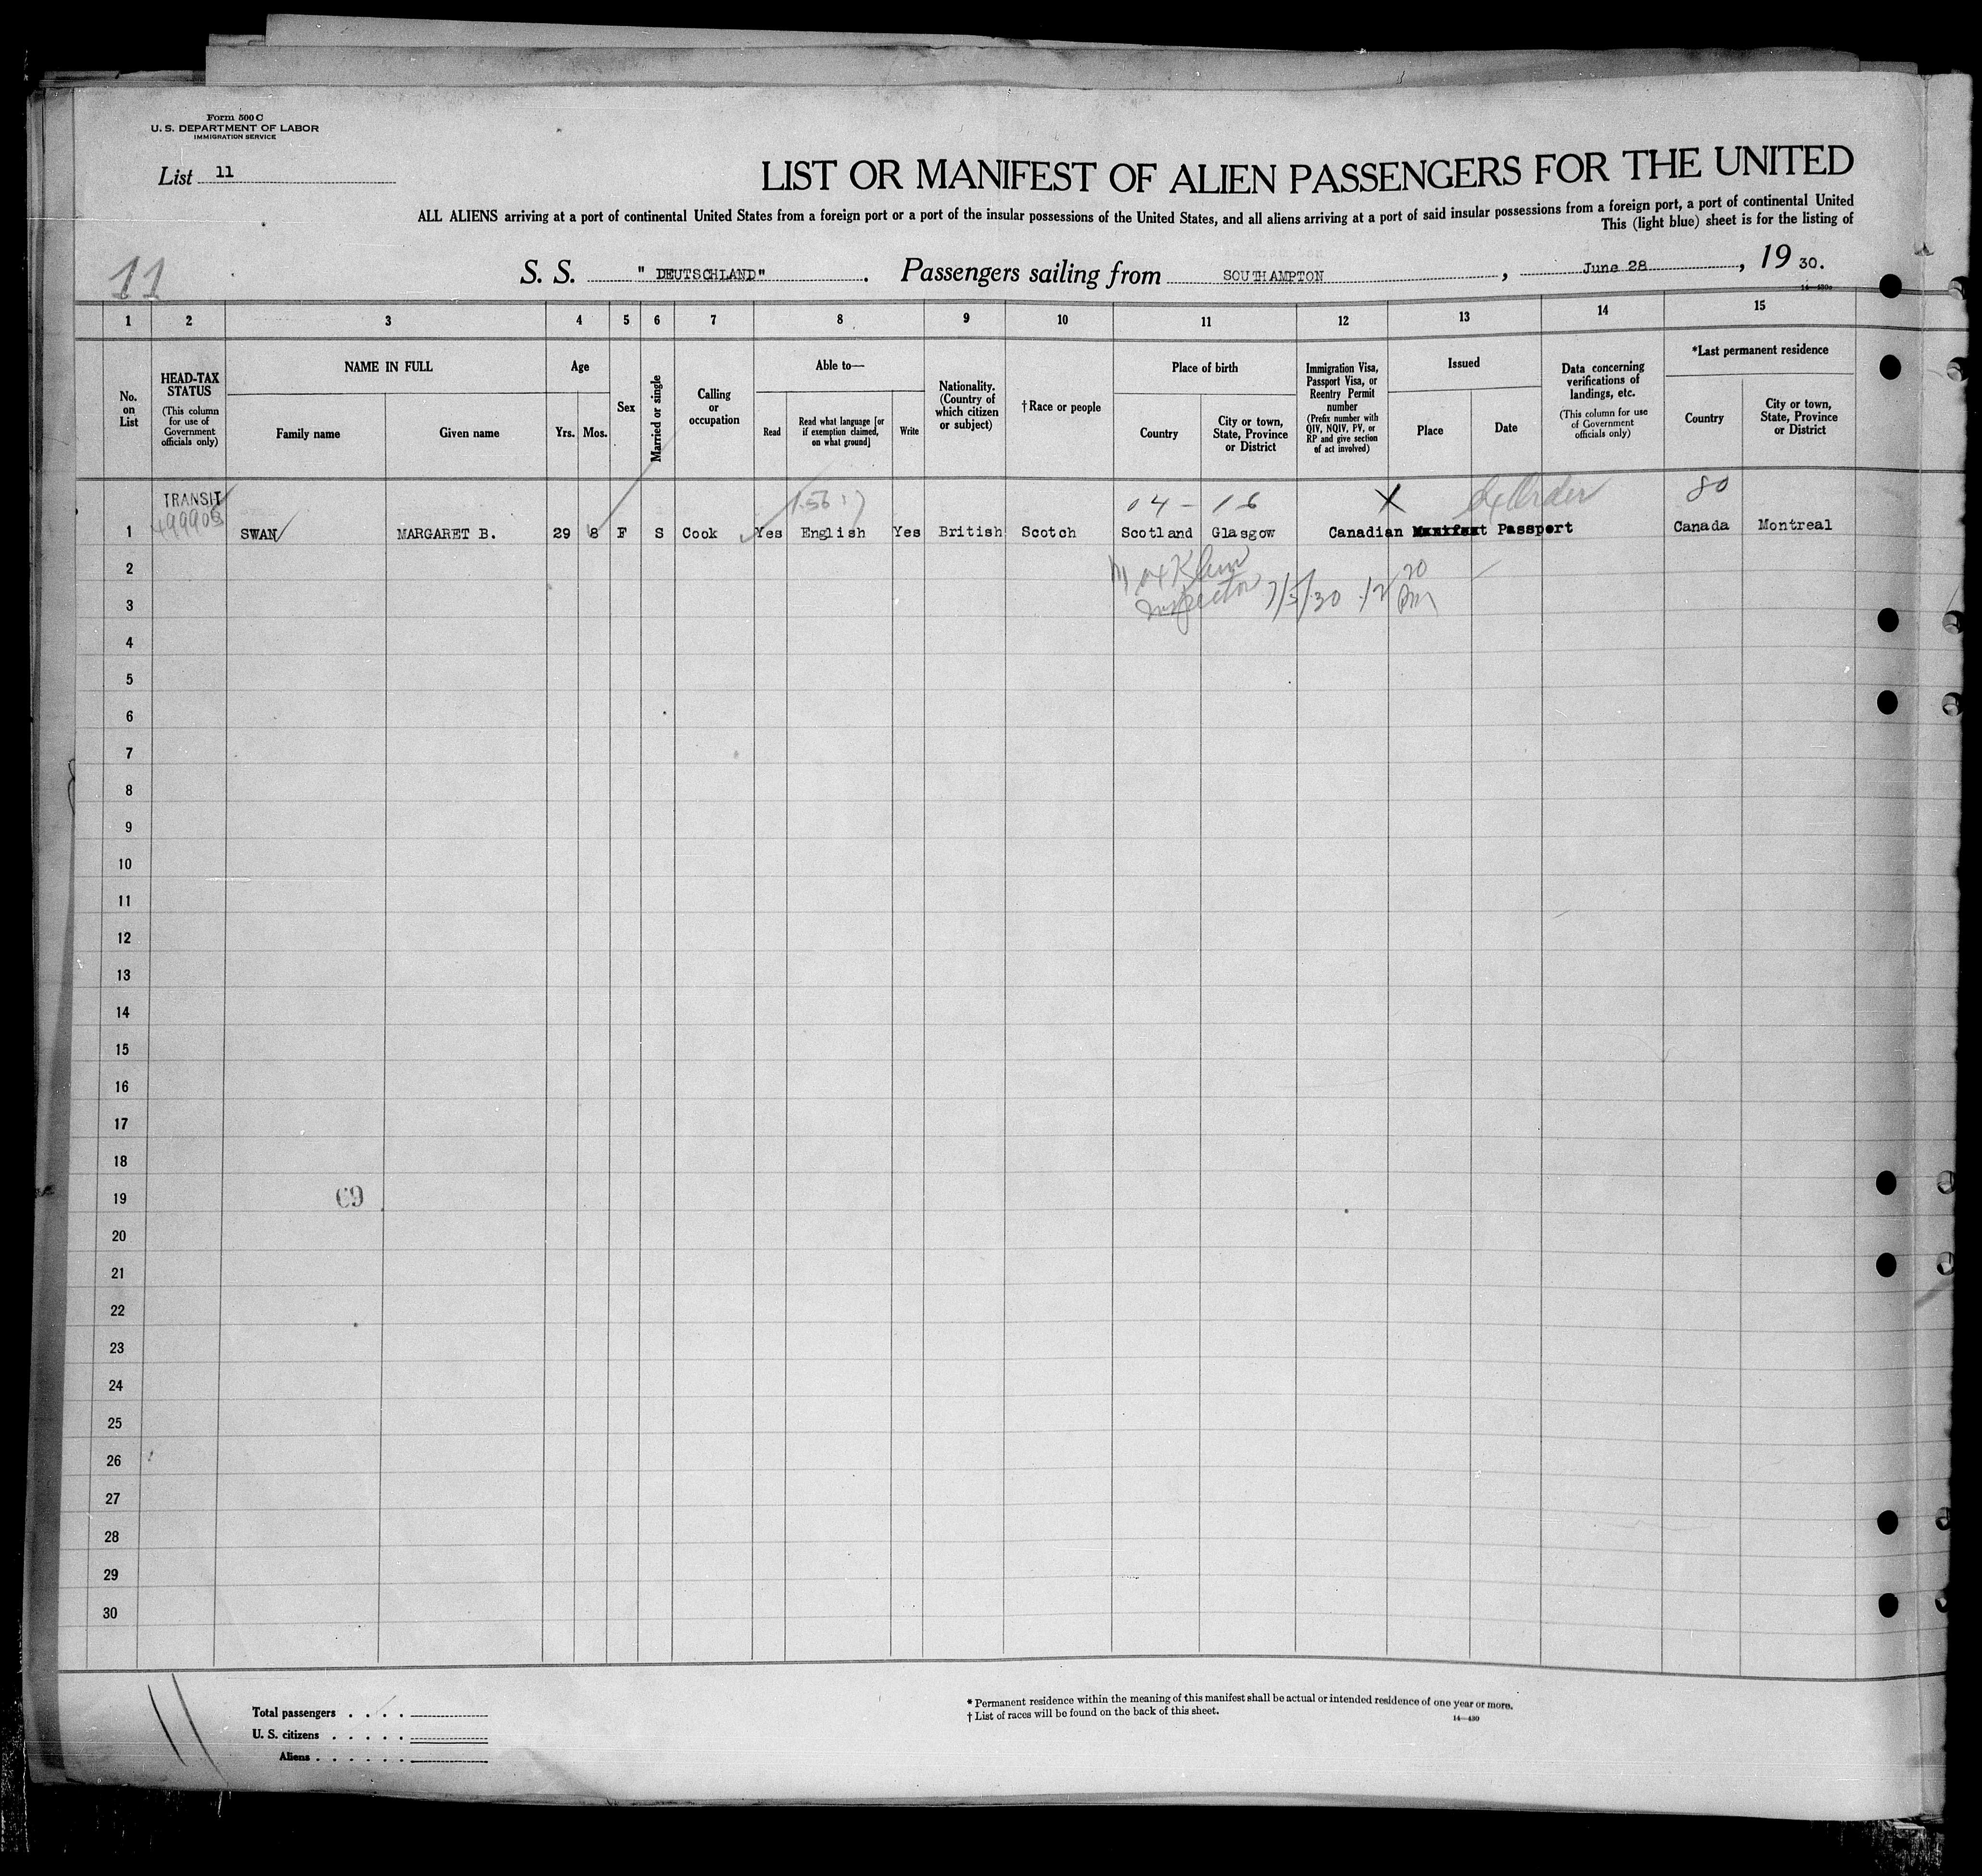 Form 500 C
U. S. DEPARTMENT OF LABOR
IMMIGRATION SERVICE
List 11
LIST OR MANIFEST OF ALIEN PASSENGERS FOR THE UNITED
ALL ALIENS arriving at a port of continental United States from a foreign port or a port of the insular possessions of the United States, and all aliens arriving at a port of said insular possessions from a foreign port, a port of continental United
This (light blue) sheet is for the listing of
11
S. S. " DEUTSCHLAND" . Passengers sailing from SOUTHAMPTON , June 28 , 19 30.
1 2 3 4 5 6 7 8 9 10 11 12 13 14 15
No. on List
HEAD-TAX STATUS (This column for use of Government officials only)
NAME IN FULL
Family name
Given name
Age
Yrs. Mos.
Sex
Married or single
Calling or occupation
Able to—
Read
Read what language [or if exemption claimed, on what ground]
Write
Nationality. (Country of which citizen or subject)
†Race or people
Place of birth
Country
City or town, State, Province or District
Immigration Visa, Passport Visa, or Reentry Permit number (Prefix number with QIV, NQIV, PV, or RP and give section of act involved)
Issued
Place
Date
Data concerning verifications of landings, etc. (This column for use of Government officials only)
*Last permanent residence
Country
City or town, State, Province or District
TRANSIT 04 - 16 X 80
1 SWAN MARGARET B. 29 8 F S Cook Yes English Yes British Scotch Scotland Glasgow Canadian Passport Canada Montreal
2
3 Inspector 7/5/30 12 20 PM
4
5
6
7
8
9
10
11
12
13
14
15
16
17
18
19 69
20
21
22
23
24
25
26
27
28
29
30
Total passengers . . . .
U. S. citizens . . . . .
Aliens . . . . . .
* Permanent residence within the meaning of this manifest shall be actual or intended residence of one year or more.
† List of races will be found on the back of this sheet.
14—430